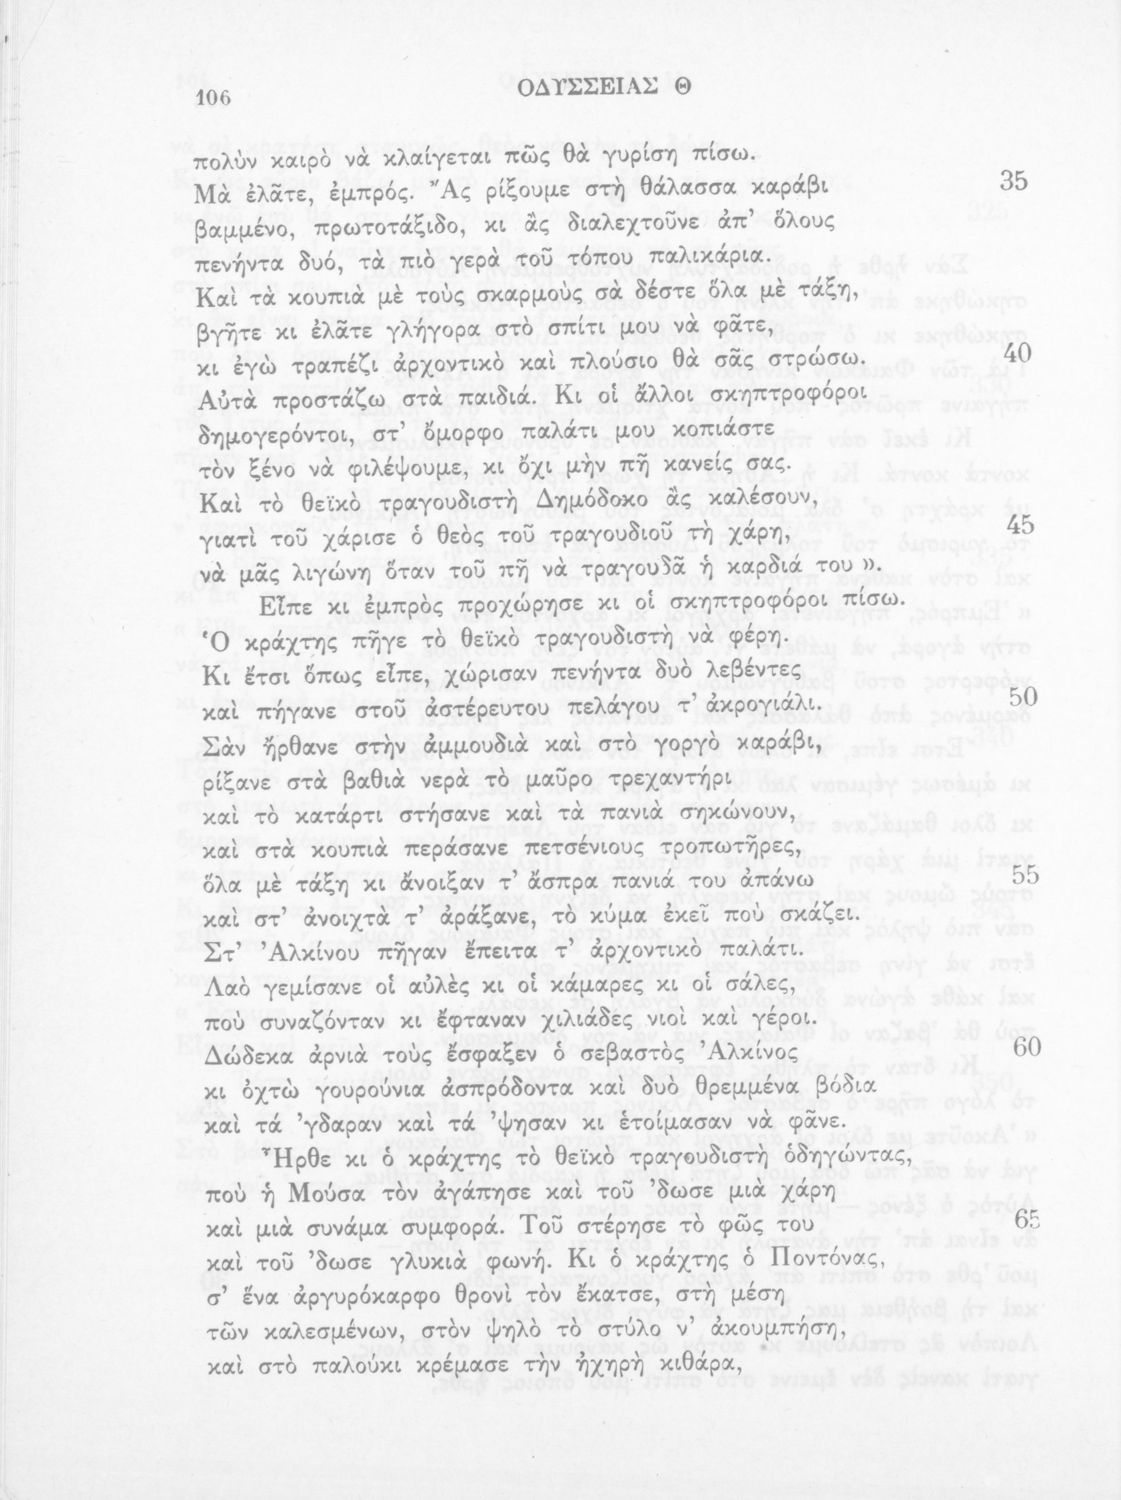 106
ΟΔΥΣΣΕΙΑΣ Θ
πολὺν καιρὸ νὰ κλαίγεται πῶς θὰ γυρίση πίσω.
Μὰ ἐλᾶτε, ἐμπρός. Ἂς ρίξουμε στὴ θάλασσα καράβι 35
βαμμένο, πρωτοτάξιδο, κι ἂς διαλεχτοῦνε ἀπ' ὅλους
πενήντα δυό, τὰ πιὸ γερὰ τοῦ τόπου παλικάρια.
Καὶ τὰ κουπιὰ μὲ τοὺς σκαρμοὺς σὰ δέστε ὅλα μὲ τάξη,
βγῆτε κι ἐλᾶτε γλήγορα στὸ σπίτι μου νὰ φᾶτε,
κι ἐγὼ τραπέζι ἀρχοντικὸ καὶ πλούσιο θὰ σᾶς στρώσω. 40
Αὐτὰ προστάζω στὰ παιδιά. Κι οἱ ἄλλοι σκηπτροφόροι
δημογερόντοι, στ' ὄμορφο παλάτι μου κοπιάστε
τὸν ξένο νὰ φιλέψουμε, κι ὄχι μὴν πῆ κανείς σας.
Καὶ τὸ θεϊκὸ τραγουδιστὴ Δημόδοκο ἂς καλέσουν,
γιατὶ τοῦ χάρισε ὁ θεὸς τοῦ τραγουδιοῦ τὴ χάρη, 45
νὰ μᾶς λιγώνη ὅταν τοῦ πῆ νὰ τραγουδᾶ ἡ καρδιά του ».
Εἶπε κι ἐμπρὸς προχώρησε κι οἱ σκηπτροφόροι πίσω.
Ὁ κράχτης πῆγε τὸ θεϊκὸ τραγουδιστὴ νὰ φέρη.
Κι ἔτσι ὅπως εἶπε, χώρισαν πενήντα δυὸ λεβέντες
καὶ πήγανε στοῦ ἀστέρευτου πελάγου τ' ἀκρογιάλι. 50
Σὰν ἤρθανε στὴν ἀμμουδιὰ καὶ στὸ γοργὸ καράβι,
ρίξανε στὰ βαθιὰ νερὰ τὸ μαῦρο τρεχαντήρι
καὶ τὸ κατάρτι στήσανε καὶ τὰ πανιὰ σηκώνουν,
καὶ στὰ κουπιὰ περάσανε πετσένιους τροπωτῆρες,
ὅλα μὲ τάξη κι ἄνοιξαν τ' ἄσπρα πανιά του ἀπάνω 55
καὶ στ' ἀνοιχτὰ τ' ἀράξανε, τὸ κύμα ἐκεῖ ποὺ σκάζει.
Στ' Ἀλκίνου πῆγαν ἔπειτα τ' ἀρχοντικὸ παλάτι.
Λαὸ γεμίσανε οἱ αὐλὲς κι οἱ κάμαρες κι οἱ σάλες,
ποὺ συναζόνταν κι ἔφταναν χιλιάδες νιοὶ καὶ γέροι.
Δώδεκα ἀρνιὰ τοὺς ἔσφαξεν ὁ σεβαστὸς Ἀλκίνος 60
κι ὀχτὼ γουρούνια ἀσπρόδοντα καὶ δυὸ θρεμμένα βόδια
καὶ τά 'γδαραν καὶ τά 'ψησαν κι ἑτοίμασαν νὰ φᾶνε.
Ἦρθε κι ὁ κράχτης τὸ θεϊκὸ τραγουδιστὴ ὁδηγώντας,
ποὺ ἡ Μούσα τὸν ἀγάπησε καὶ τοῦ 'δωσε μιὰ χάρη
καὶ μιὰ συνάμα συμφορά. Τοῦ στέρησε τὸ φῶς του 65
καὶ τοῦ 'δωσε γλυκιὰ φωνή. Κι ὁ κράχτης ὁ Ποντόνας,
σ' ἕνα ἀργυρόκαρφο θρονὶ τὸν ἔκατσε, στὴ μέση
τῶν καλεσμένων, στὸν ψηλὸ τὸ στύλο ν' ἀκουμπήση,
καὶ στὸ παλούκι κρέμασε τὴν ἠχηρὴ κιθάρα,